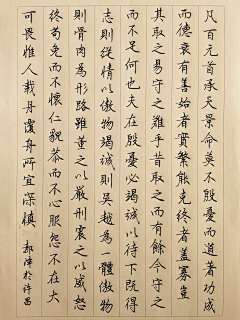 凡百元首承天景命莫不殷憂而道著功成
而德衰有善始者實繁能克終者蓋寡豈
其取之易守之難乎昔取之而有餘今守之
而不足何也夫在殷憂必竭誠以待下既得
志則縱情以傲物竭誠則吳越為一體傲物
則骨肉為行路雖董之以嚴刑震之以威怒
終苟免而不懷仁貌恭而不心服怨不在大
可畏惟人載舟覆舟所宜深慎 於許昌